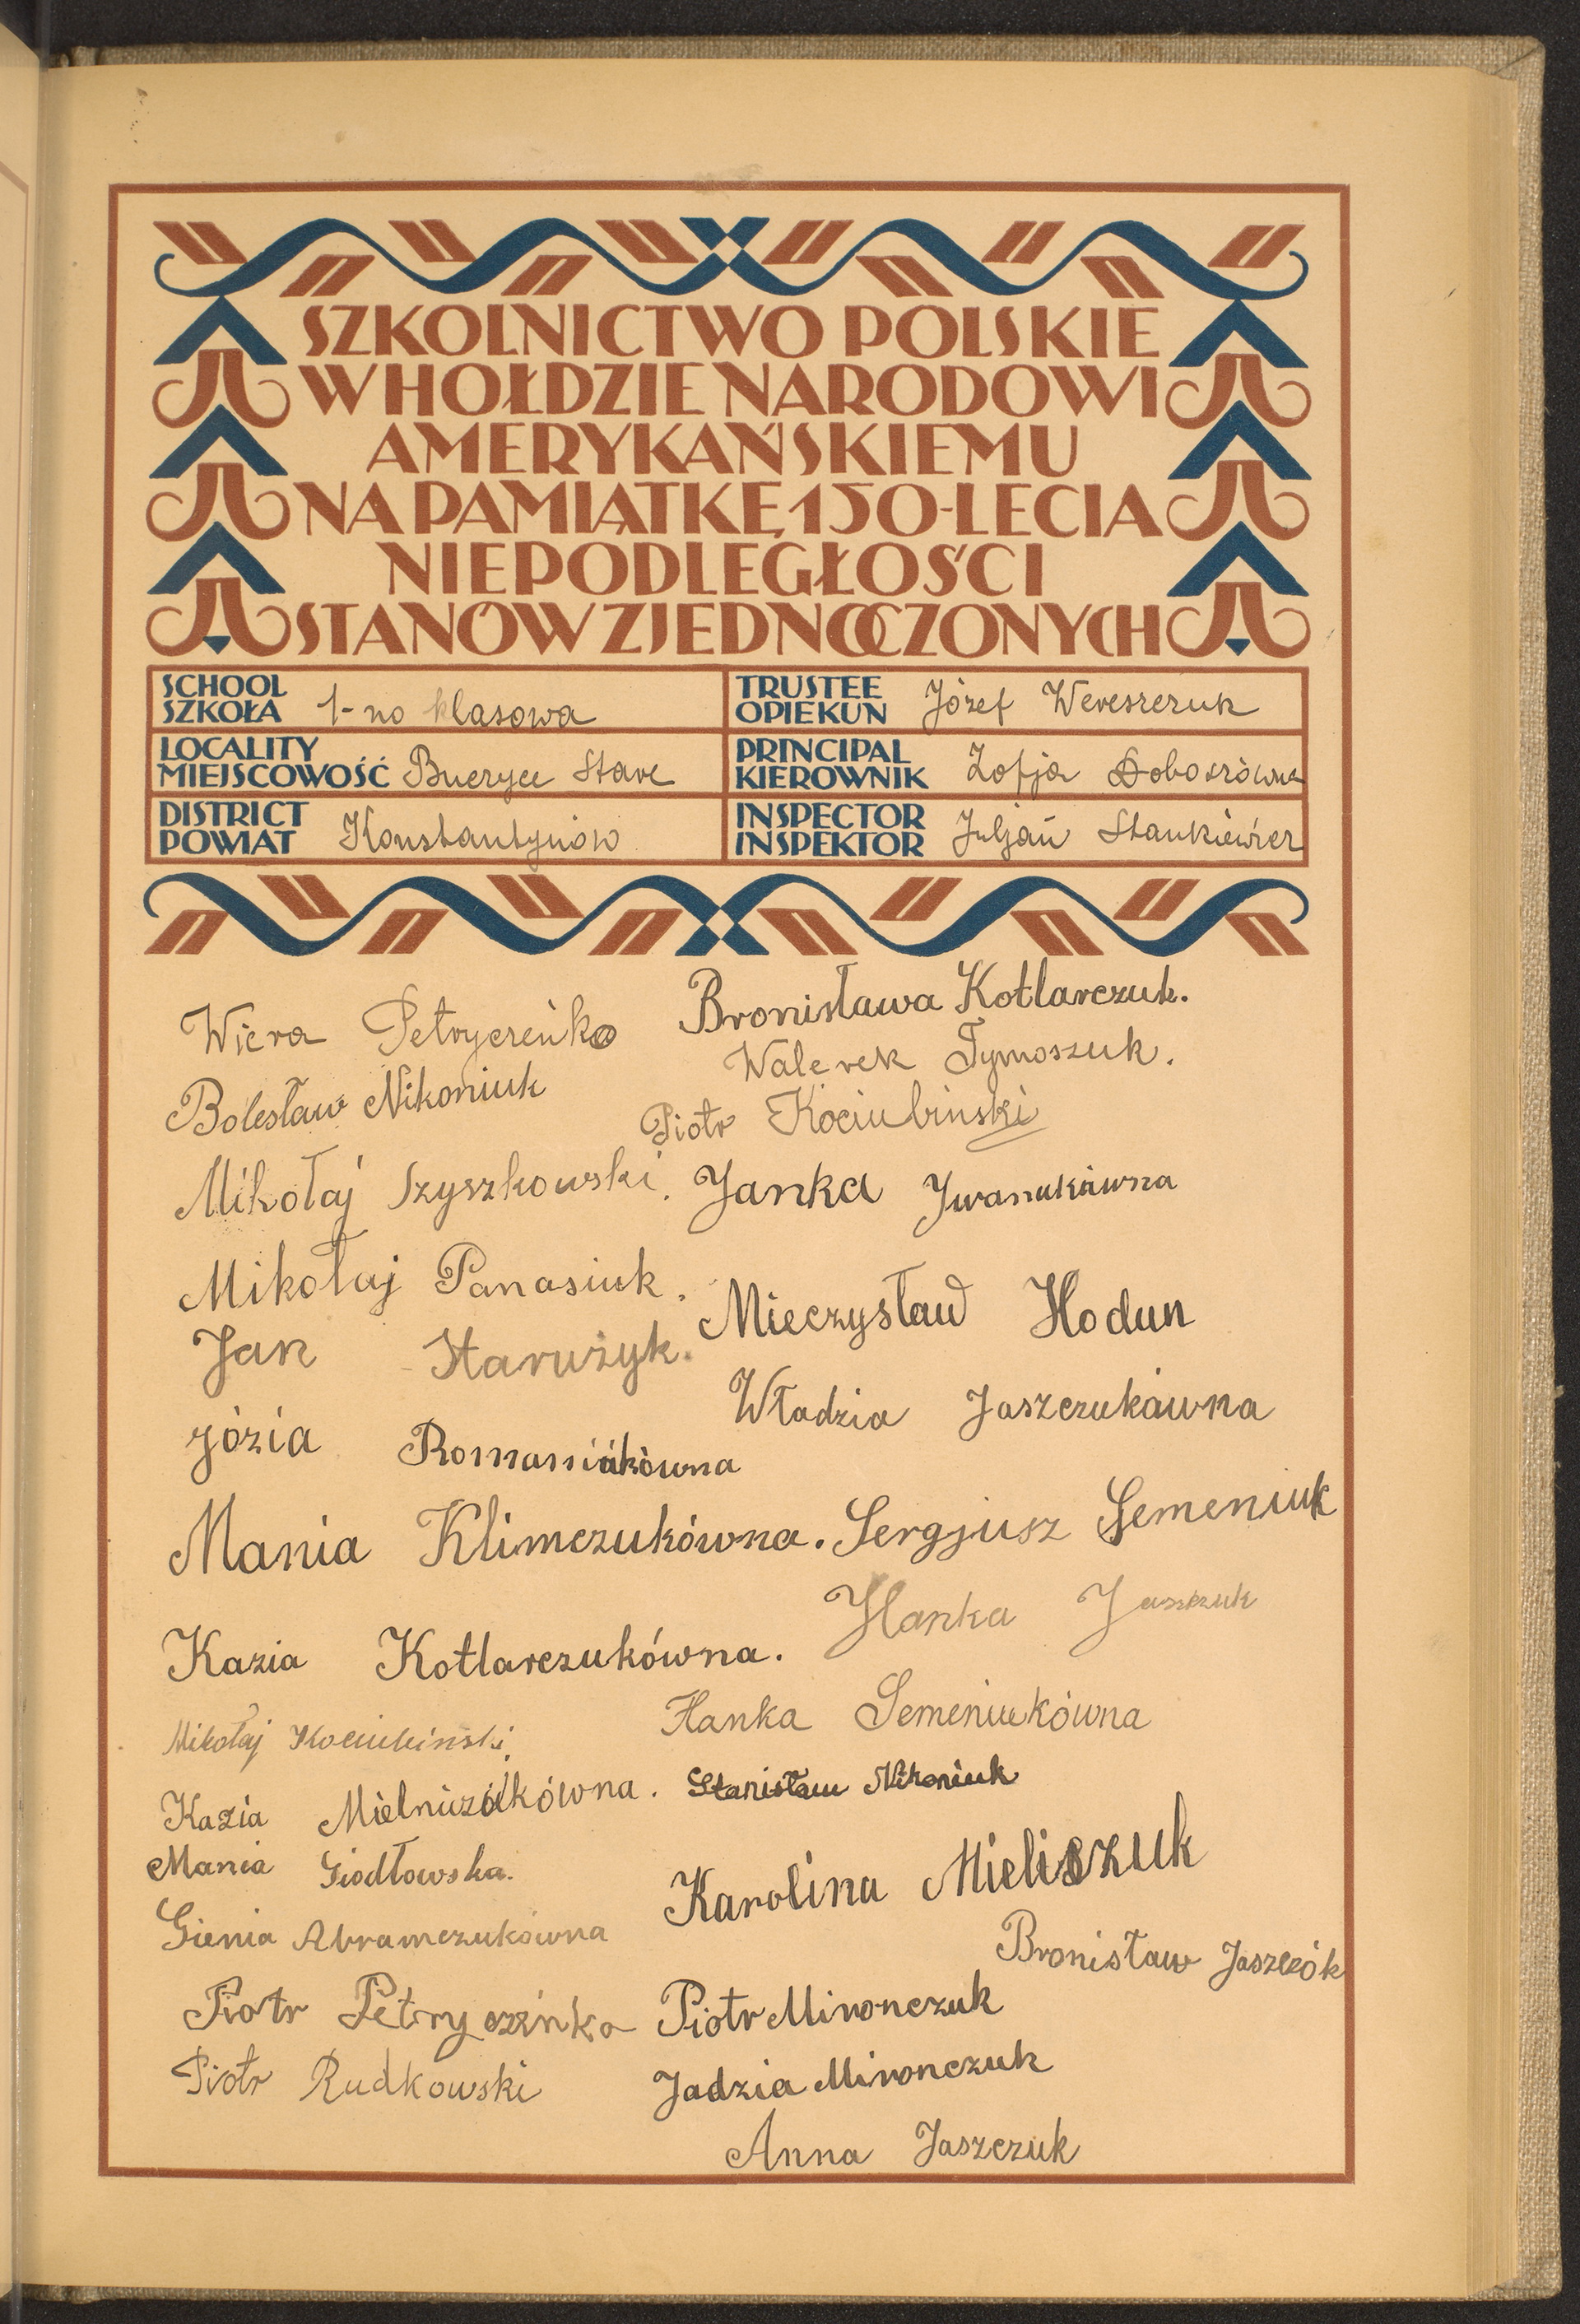 SZKOLNICTWO POLSKIE
W HOŁDZIE NARODOWI
AMERYKAŃSKIEMU
NA PAMIĄTKĘ 150-LECIA
NIEPODLEGŁOŚCI
STANÓW ZJEDNOCZONYCH
SCHOOL
SZKOŁA 1-no klasowa
TRUSTEE
OPIEKUN Józef Wereszczuk
LOCALITY
MIEJSCOWOŚĆ Buczyce Stare
PRINCIPAL
KIEROWNIK Zofja Doboszówna
DISTRICT
POWIAT Konstantynów
INSPECTOR
INSPEKTOR Juljań Stankiewicz
Wiera Petryczeńko
Bolesław Nikoniuk
Mikołaj Szyszkowski.
Mikołaj Panasiuk.
Jan Harużyk.
józia Romaniukówna
Mania Klimczukówna.
Kazia Kotlarczukówna.
Mikołaj Kociubiński
Kazia Mielniczukówna.
Mania Siodłowska.
Gienia Abramczukówna
Piotr Petryczenko
Piotr Rudkowski
Bronisława Kotlarczuk.
Walerek Tymoszuk.
Piotr Kociubinski
Janka Jwanukówna
Mieczysław Hodun
Władzia Jaszczukówna
Sergjusz Semeniuk
Hanka Jaszczuk
Hanka Semeniukówna
Stanisław Nikoniuk
Karolina Mieliszuk
Bronisław Jaszczók
Piotr Mironczuk
Jadzia Mironczuk
Anna Jaszczuk